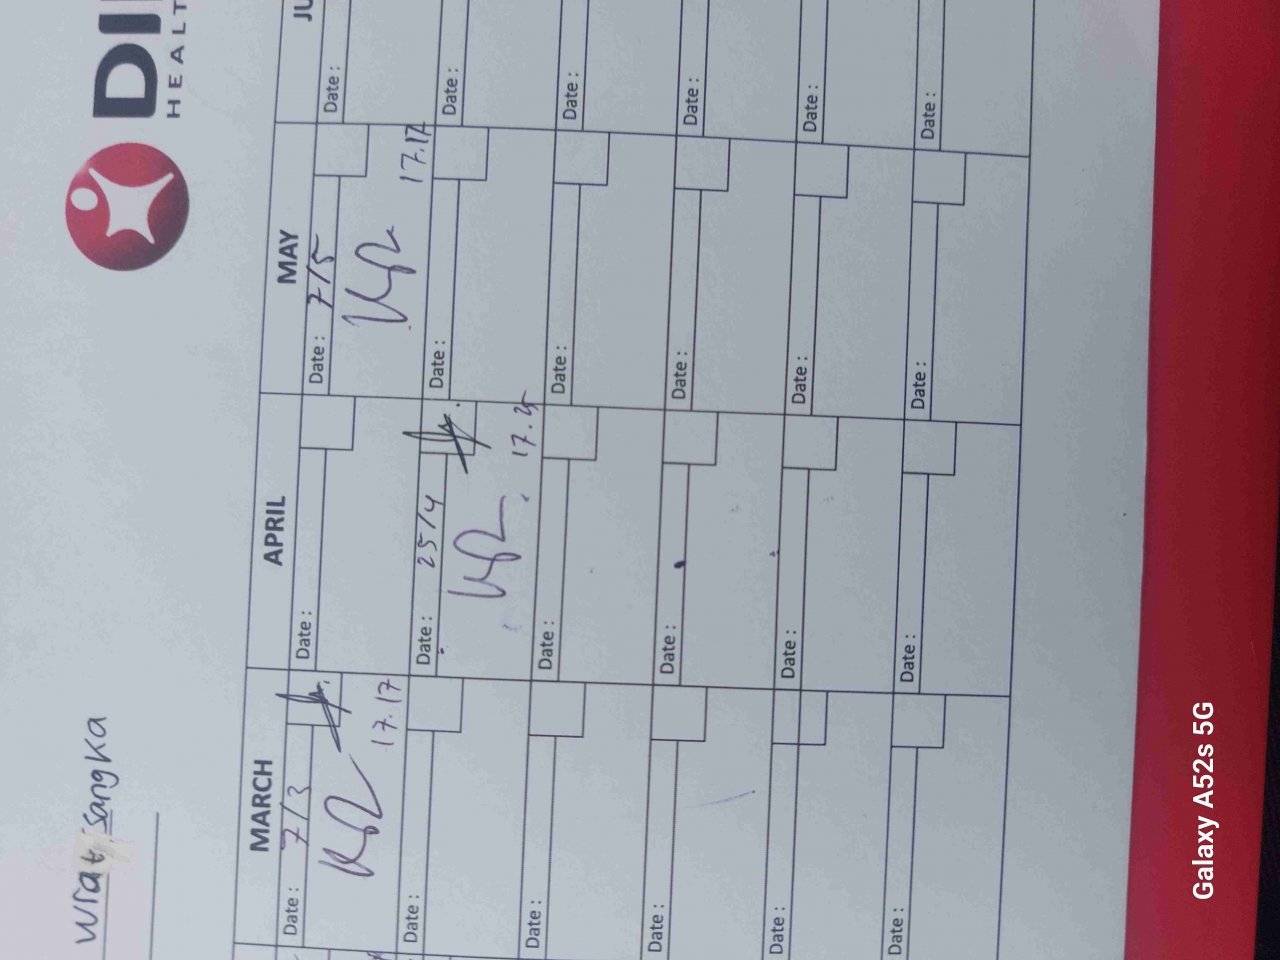 wrat sangka
DI
HEALT
MARCH APRIL MAY JU
Date: 7/3 Date: Date: 7/5 Date:
17.17 17.17
Date: Date: 25/4 Date: Date:
17.25
Date: Date: Date: Date:
Date: Date: Date: Date:
Date: Date: Date: Date:
Date: Date: Date: Date:
Galaxy A52s 5G